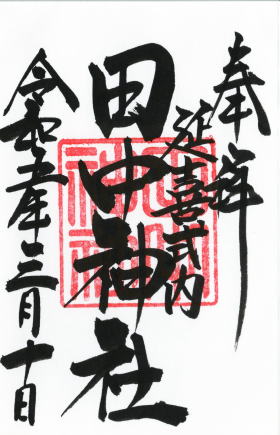 奉拝
延喜式内
田中神社
令和年三月十日